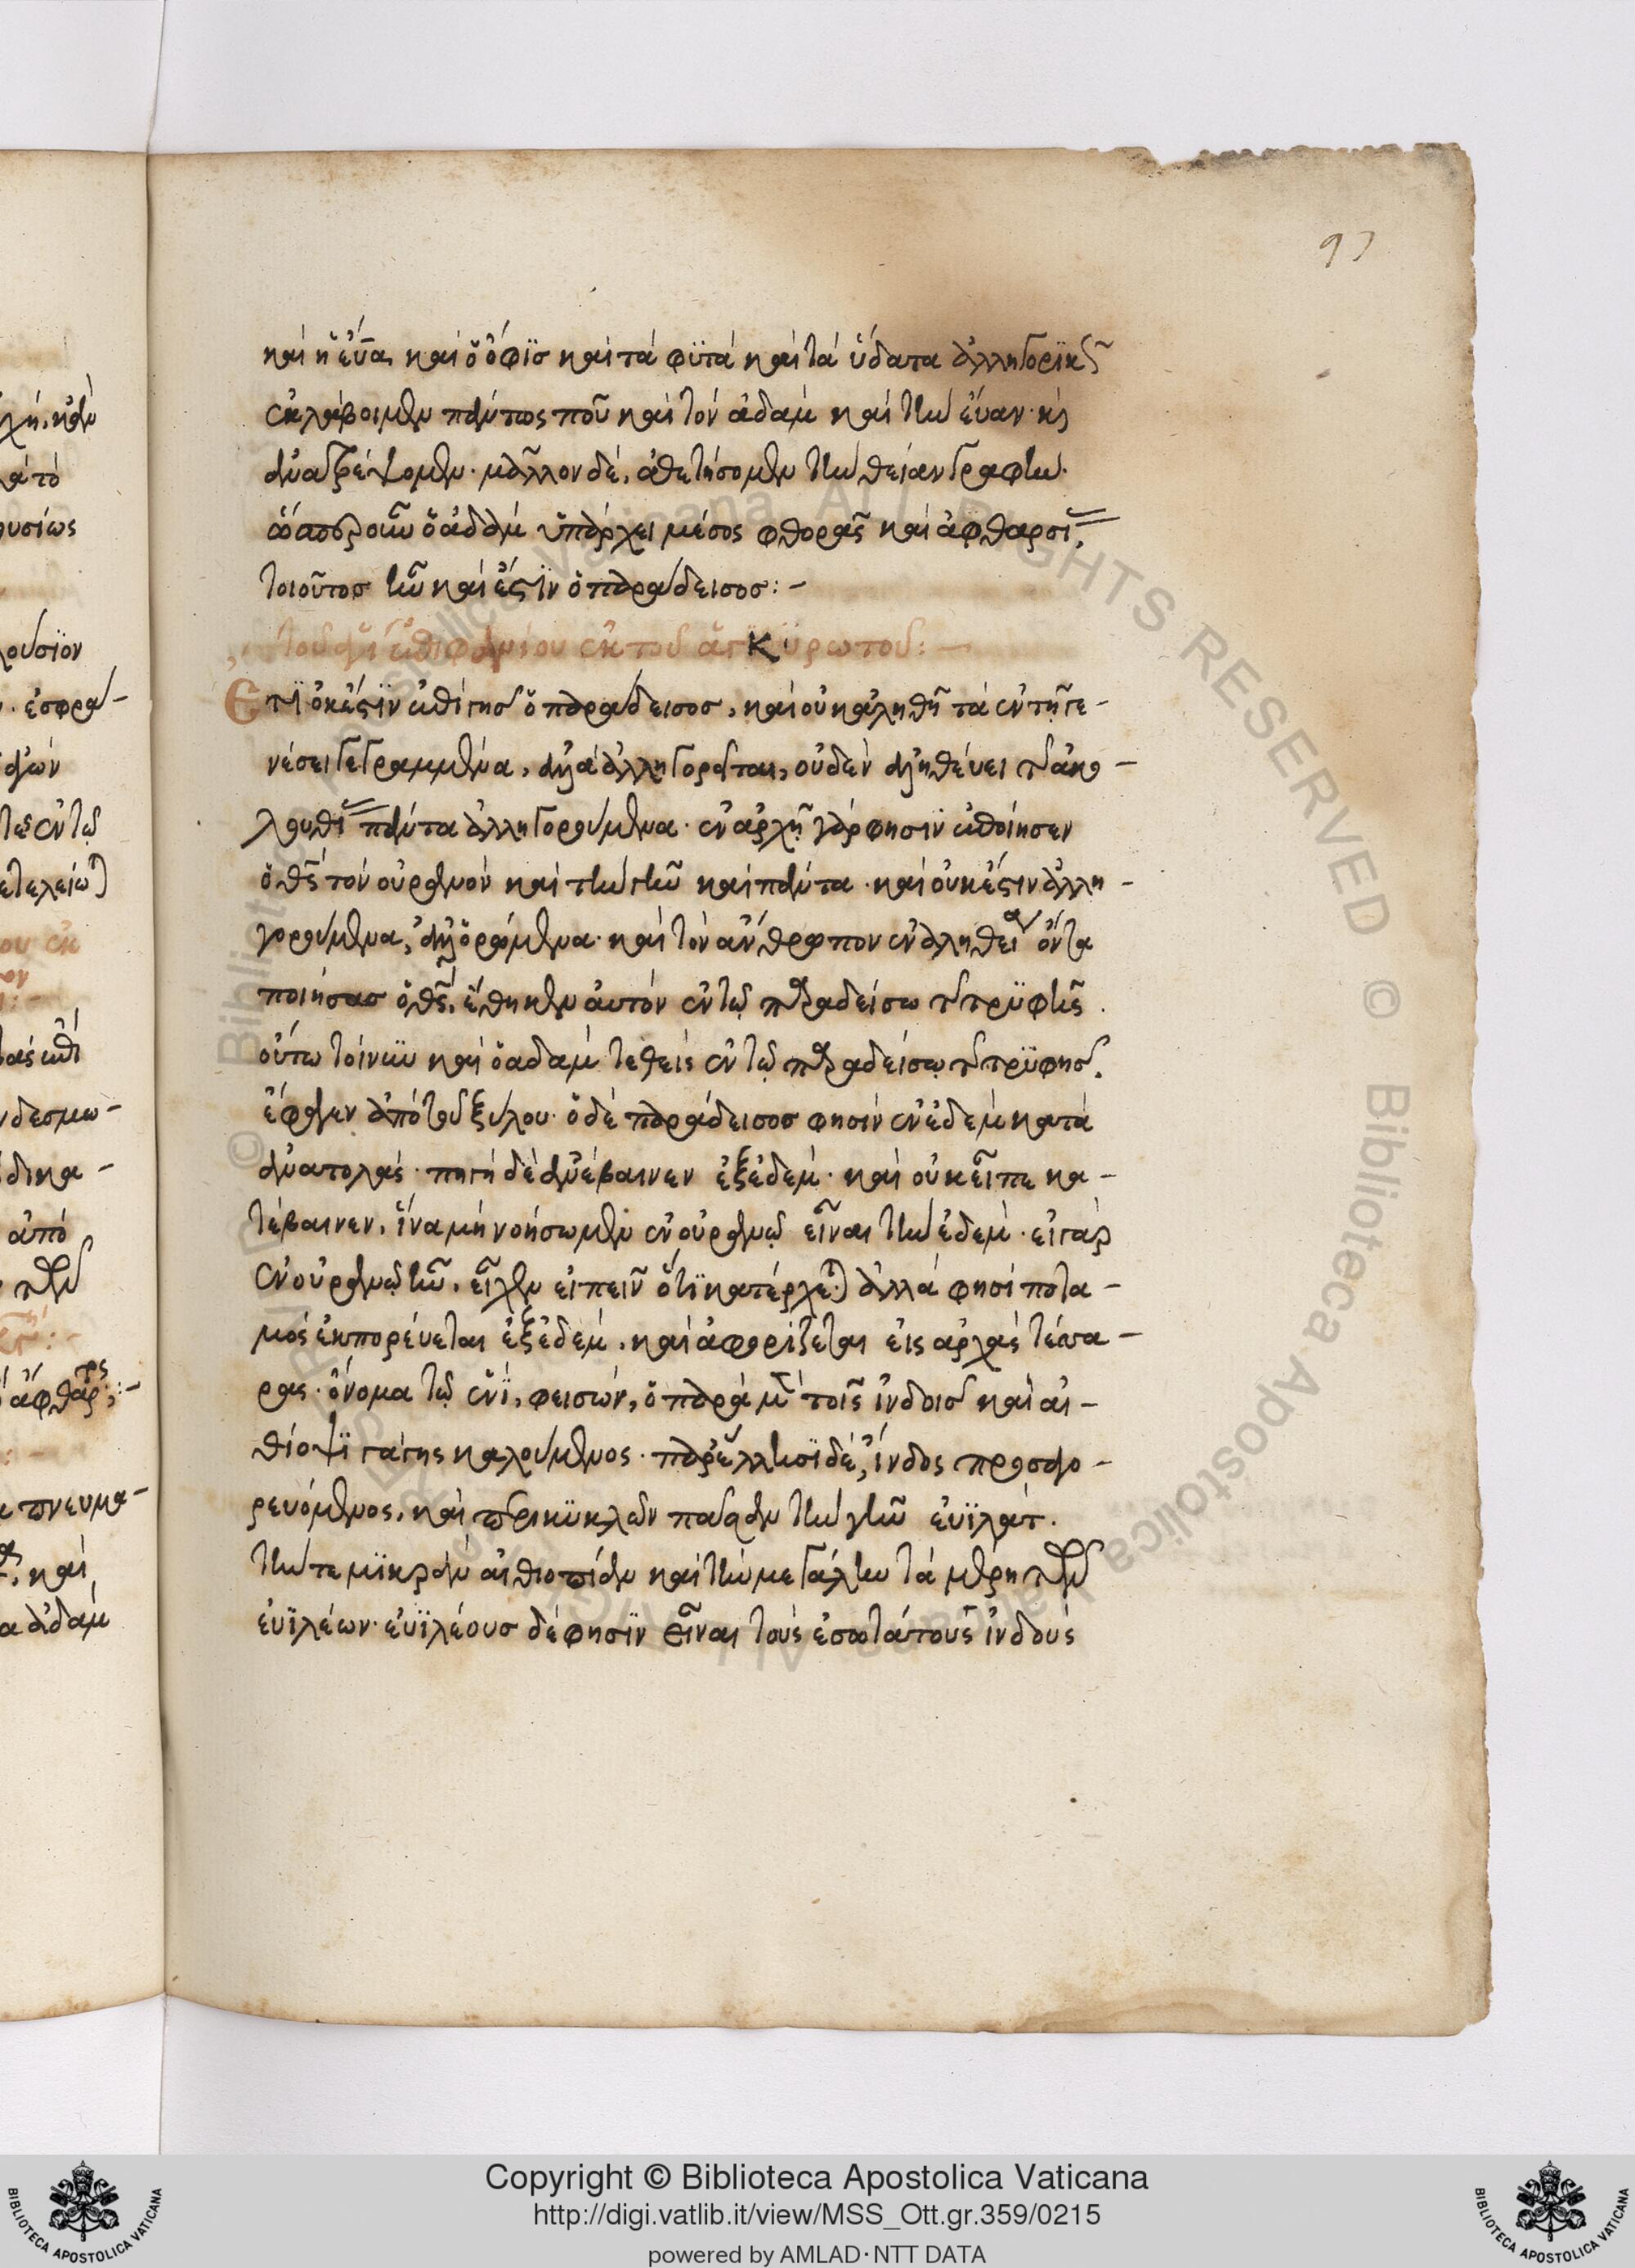 97
καὶ ἡ εὔα, καὶ ὁ ὄφϊσ καὶ τὰ φϋτὰ καὶ τὰ ὕδατα ἀλληγορϊκῶς
ἐκλάβοιμεν πάντως που καὶ τὸν ἀδὰμ καὶ τὴν εὔαν· καὶ
ἀναστρέψομεν· μᾶλλον δὲ, ἀθετήσομεν τὴν θείαν γραφήν·
ὥσπερ οὖν ὁ ἀδὰμ ὑπάρχει μέσος φθορᾶς καὶ ἀφθαρσίας,
τοιοῦτοσ ἦν καὶ ἔστϊν ὁ παράδεισοσ:–
τοῦ ἁγίου ἐπιφανίου ἐκ τοῦ ἀγκϋρωτοῦ:–
Ετϊ οὐκ ἔστϊν ἐπὶ γῆσ ὁ παράδεισοσ, καὶ οὐκ ἀληθῆ τὰ ἐν τῇ γε–
νέσει γεγραμμένα, ἀλλὰ ἀλληγορεῖται, οὐδὲν ἀληθεύει τῆς ἀκο–
λουθίας πάντα ἀλληγορούμενα· ἐν ἀρχῇ γάρ φησϊν ἐποίησεν
ὁ θεὸς τὸν οὐρανὸν καὶ τὴν γῆν καὶ πάντα· καὶ οὐκ ἔστιν ἀλλη–
γορούμενα, ἀλλ' ὁρώμενα· καὶ τὸν ἄνθρωπον ἐν ἀληθείᾳ ὄντα
ποιήσασ ὁ θεὸς, ἔθηκεν αὐτὸν ἐν τῷ παραδείσω τῆς τρϋφῆς.
οὕτω τοίνυν καὶ ὁ αδὰμ τεθεὶς ἐν τῷ παραδείσῳ τῆς τρϋφησ,
ἔφαγεν ἀπὸ τοῦ ξύλου· ὁ δὲ παράδεισοσ φησὶν ἐν ἐδὲμ κατὰ
ἀνατολάς· πηγὴ δὲ ἀνέβαινεν ἐξ ἐδέμ· καὶ οὐκ εἶπε κα–
τέβαινεν, ἵνα μὴ νοήσωμεν ἐν οὐρανῷ εἶναι τὴν ἐδέμ· εἰ γὰρ
ἐν οὐρανῷ ἦν, εἶχεν εἰπεῖν ὅτϊ κατέρχεται· ἀλλά φησί ποτα–
μὸς ἐκπορεύεται ἐξ ἐδέμ, καὶ ἀφορίζεται εἰς ἀρχὰς τέσσα–
ρας· ὄνομα τῷ ἑνϊ, φεισών, ὁ παρὰ μὲν τοῖς ἰνδοισ καὶ αἰ–
θίοψϊ γάγης καλούμενος· παρ' ἕλλησϊ δὲ, ἴνδος προσαγο–
ρευόμενος, καὶ περικϋκλῶν πασαν τὴν γῆν εὐϊλάτ.
τήν τε μϊκρὰν αἰθιοπίαν καὶ τὴν μεγάλην τὰ μέρη τῶν
εὐϊλέων· εὐϊλέουσ δέ φησϊν εἶναι τοὺς ἐσωτάτους ἰνδοὺς
Copyright © Biblioteca Apostolica Vaticana
http://digi.vatlib.it/view/MSS_Ott.gr.359/0215
powered by AMLAD·NTT DATA